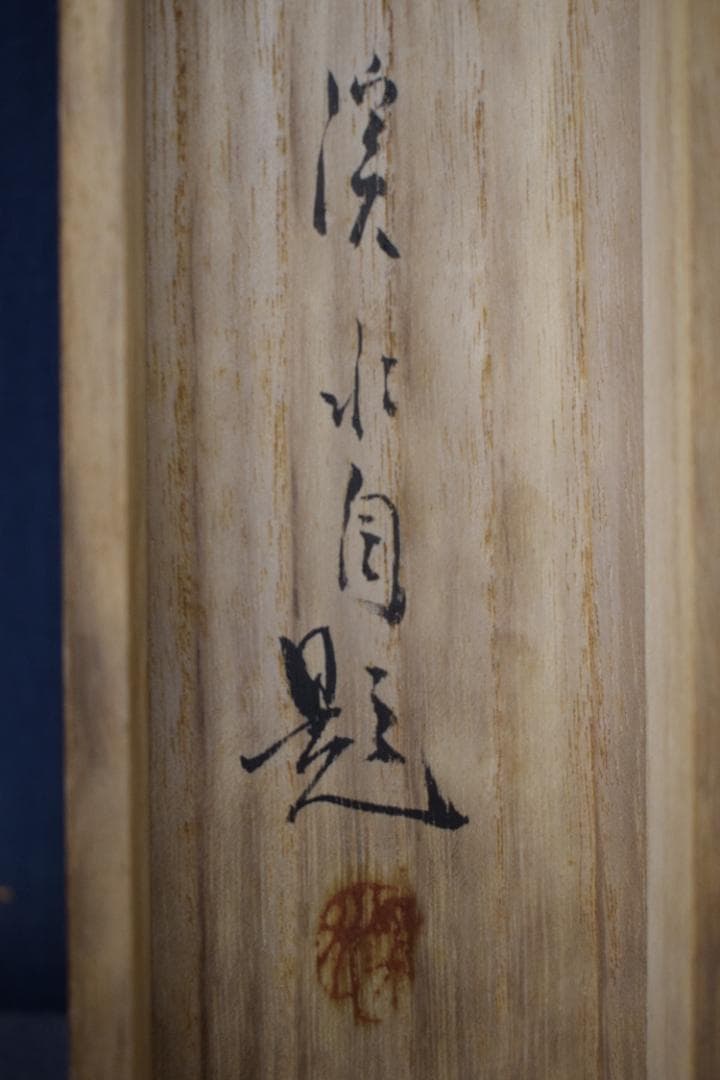 渓水自題